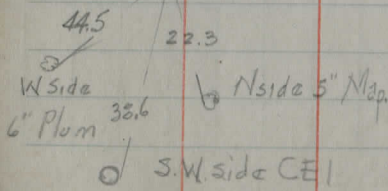 44.5
22.3
W Side
N side 5" Map
6" Plum
38.6
S.W. side CEl